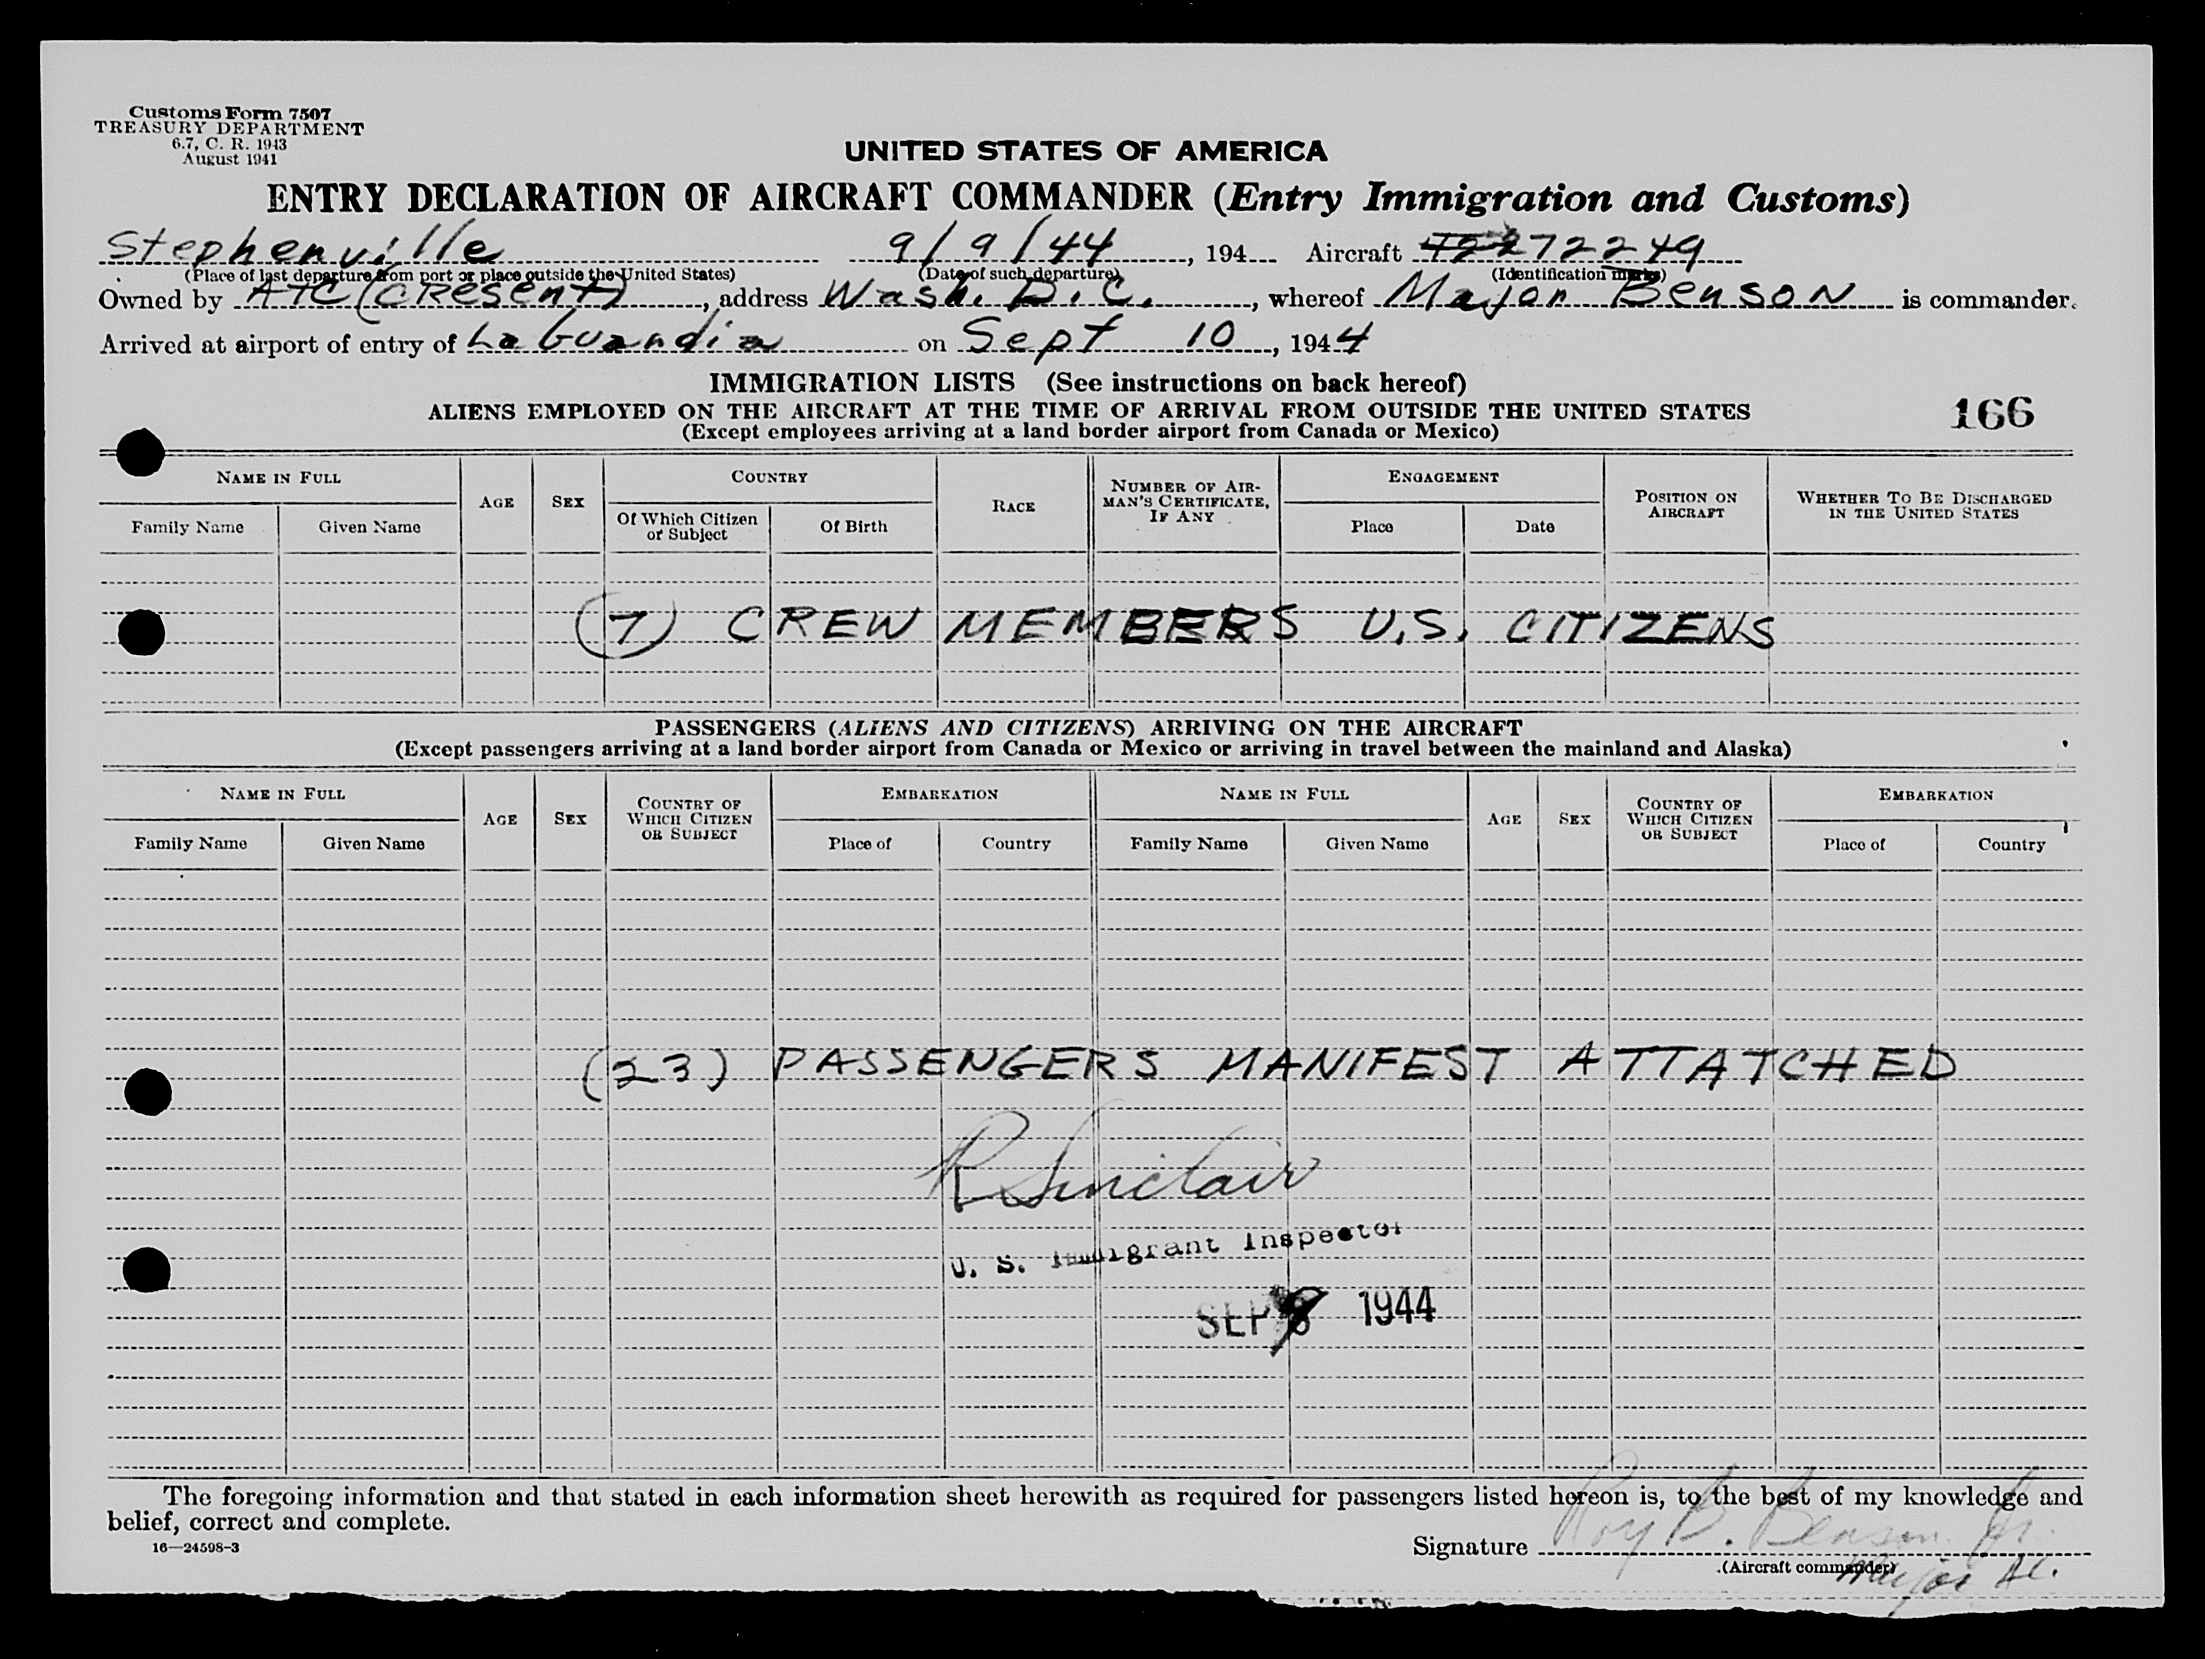 Customs Form 7507
TREASURY DEPARTMENT
6.7, C. R. 1943
August 1941
UNITED STATES OF AMERICA
ENTRY DECLARATION OF AIRCRAFT COMMANDER (Entry Immigration and Customs)
Stephenville 9/9/44, 194 Aircraft 272249
(Place of last departure from port or place outside the United States) (Date of such departure) (Identification marks)
Owned by ATC (CResent), address Wash. D.C., whereof Major Benson is commander.
Arrived at airport of entry of La Guardia on Sept 10, 1944
IMMIGRATION LISTS (See instructions on back hereof)
ALIENS EMPLOYED ON THE AIRCRAFT AT THE TIME OF ARRIVAL FROM OUTSIDE THE UNITED STATES
166
(Except employees arriving at a land border airport from Canada or Mexico)
NAME IN FULL AGE SEX COUNTRY RACE NUMBER OF AIRMAN'S CERTIFICATE, IF ANY ENGAGEMENT POSITION ON AIRCRAFT WHETHER TO BE DISCHARGED IN THE UNITED STATES
Family Name Given Name Of Which Citizen or Subject Of Birth Place Date
(7) CREW MEMBERS U.S. CITIZENS
PASSENGERS (ALIENS AND CITIZENS) ARRIVING ON THE AIRCRAFT
(Except passengers arriving at a land border airport from Canada or Mexico or arriving in travel between the mainland and Alaska)
NAME IN FULL AGE SEX COUNTRY OF WHICH CITIZEN OR SUBJECT EMBARKATION NAME IN FULL AGE SEX COUNTRY OF WHICH CITIZEN OR SUBJECT EMBARKATION
Family Name Given Name Place of Country Family Name Given Name Place of Country
(23) PASSENGERS MANIFEST ATTATCHED
R Sinclair
U. S. Immigrant Inspector
SEP 1944
The foregoing information and that stated in each information sheet herewith as required for passengers listed hereon is, to the best of my knowledge and
belief, correct and complete.
16—24598-3
Signature Roy B. Benson Jr.
(Aircraft commander)
Major AC.